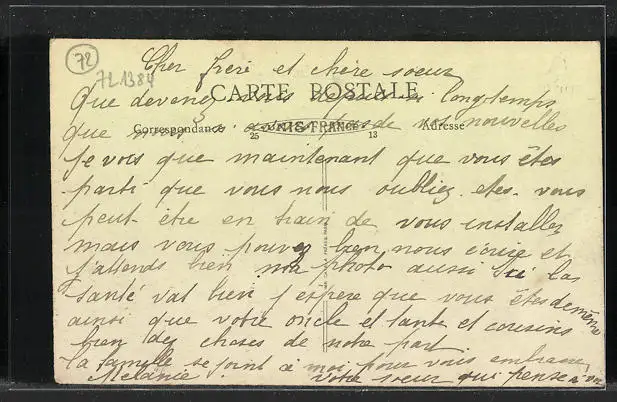 72
721384
Cher frere et chère soeur
CARTE POSTALE
Que devenez vous depuis si longtemps
Correspondance UNIS-FRANCE Adresse
25 13
que nous avons pas de vos nouvelles
je vois que maintenant que vous êtes
parti que vous nous oubliez etes-vous
peut-être en train de vous installer
mais vous pouvez bien nous écrire et
j'attends bien ma photo aussi ici la
santé vat bien j'espere que vous êtes de même
ainsi que votre oncle et tante et cousins
bien des choses de notre part
la famille se joint à moi pour vous embrasser
Melanie votre soeur qui pense a vous